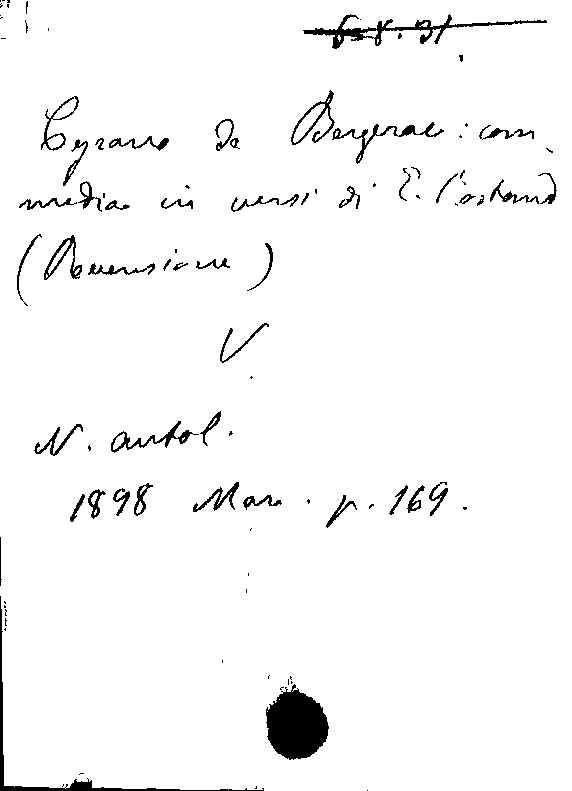 6.8.31
Cyrano de Bergerac: com
media in versi di E. Rostand
(Recensione)
V.
N. antol.
1898 Marz. p. 169.